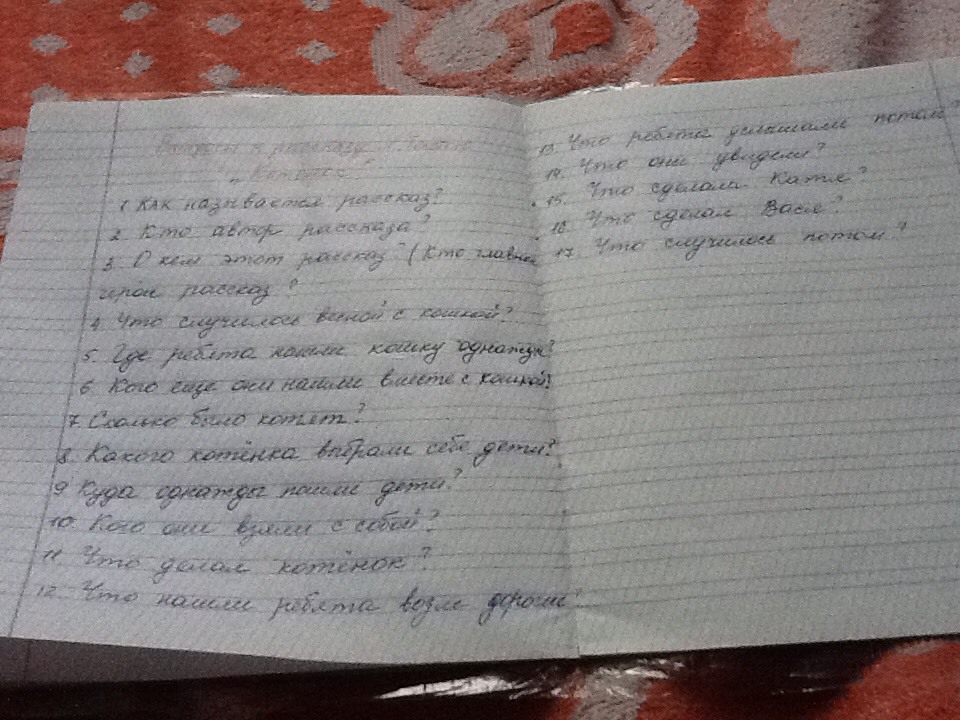 Вопросы к рассказу Л. Толстого
„Котёнок"
1. Как называется рассказ?
2. Кто автор рассказа?
3. О ком этот рассказ? (Кто главной
герои рассказ?
4. Что случилось весной с кошкой?
5. Где ребята нашли кошку однажды?
6. Кого еще они нашли вместе с кошкой?
7. Сколько было котят?
8. Какого котёнка выбрали себе дети?
9. Куда однажды пошли дети?
10. Кого они взяли с собой?
11. Что делал котёнок?
12. Что нашли ребята возле дороги?
13. Что ребята услышали потом?
14. Что они увидели?
15. Что сделала Катя?
16. Что сделал Вася?
17. Что случилось потом?